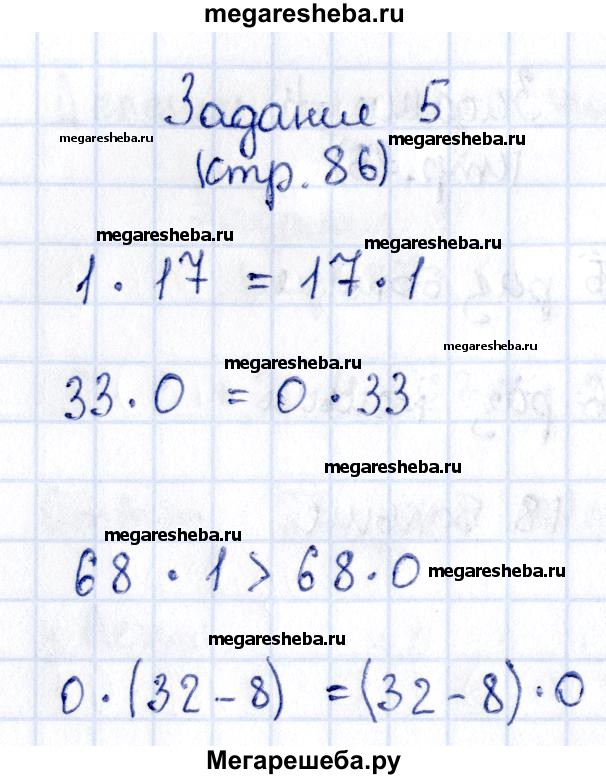 megaresheba.ru
Задание 5
megaresheba.ru
megaresheba.ru
(стр. 86)
megaresheba.ru
megaresheba.ru
1 · 17 = 17 · 1
megaresheba.ru
megaresheba.ru
33 · 0 = 0 · 33
megaresheba.ru
megaresheba.ru
68 · 1 > 68 · 0
megaresheba.ru
megaresheba.ru
0 · (32 - 8) = (32 - 8) · 0
Мегарешеба.ру